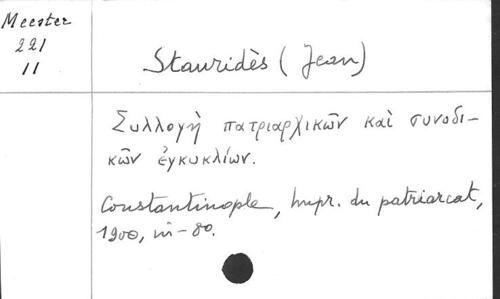 Meester
221
11
Stauridès (Jean)
Συλλογὴ πατριαρχικῶν καὶ συνοδι-
κῶν ἐγκυκλίων.
Constantinople, Impr. du patriarcat,
1900, in-8o.